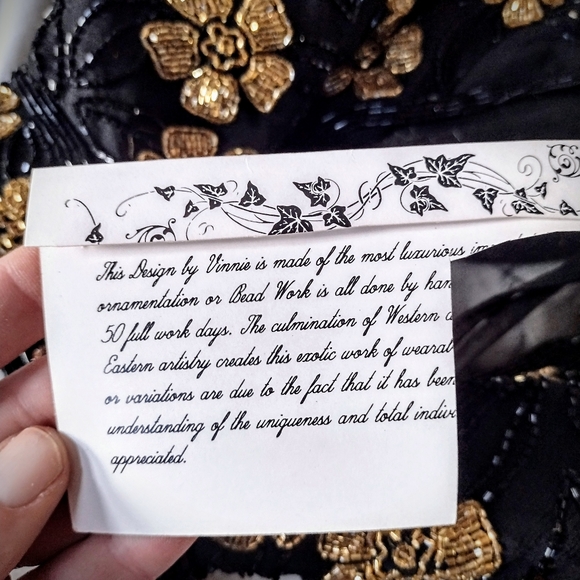 This Design by Vinnie is made of the most luxurious
ornamentation or Bead Work is all done by
50 full work days. The culmination of Western
Eastern artistry creates this exotic work of
or variations are due to the fact that it has been
understanding of the uniqueness and total
appreciated.